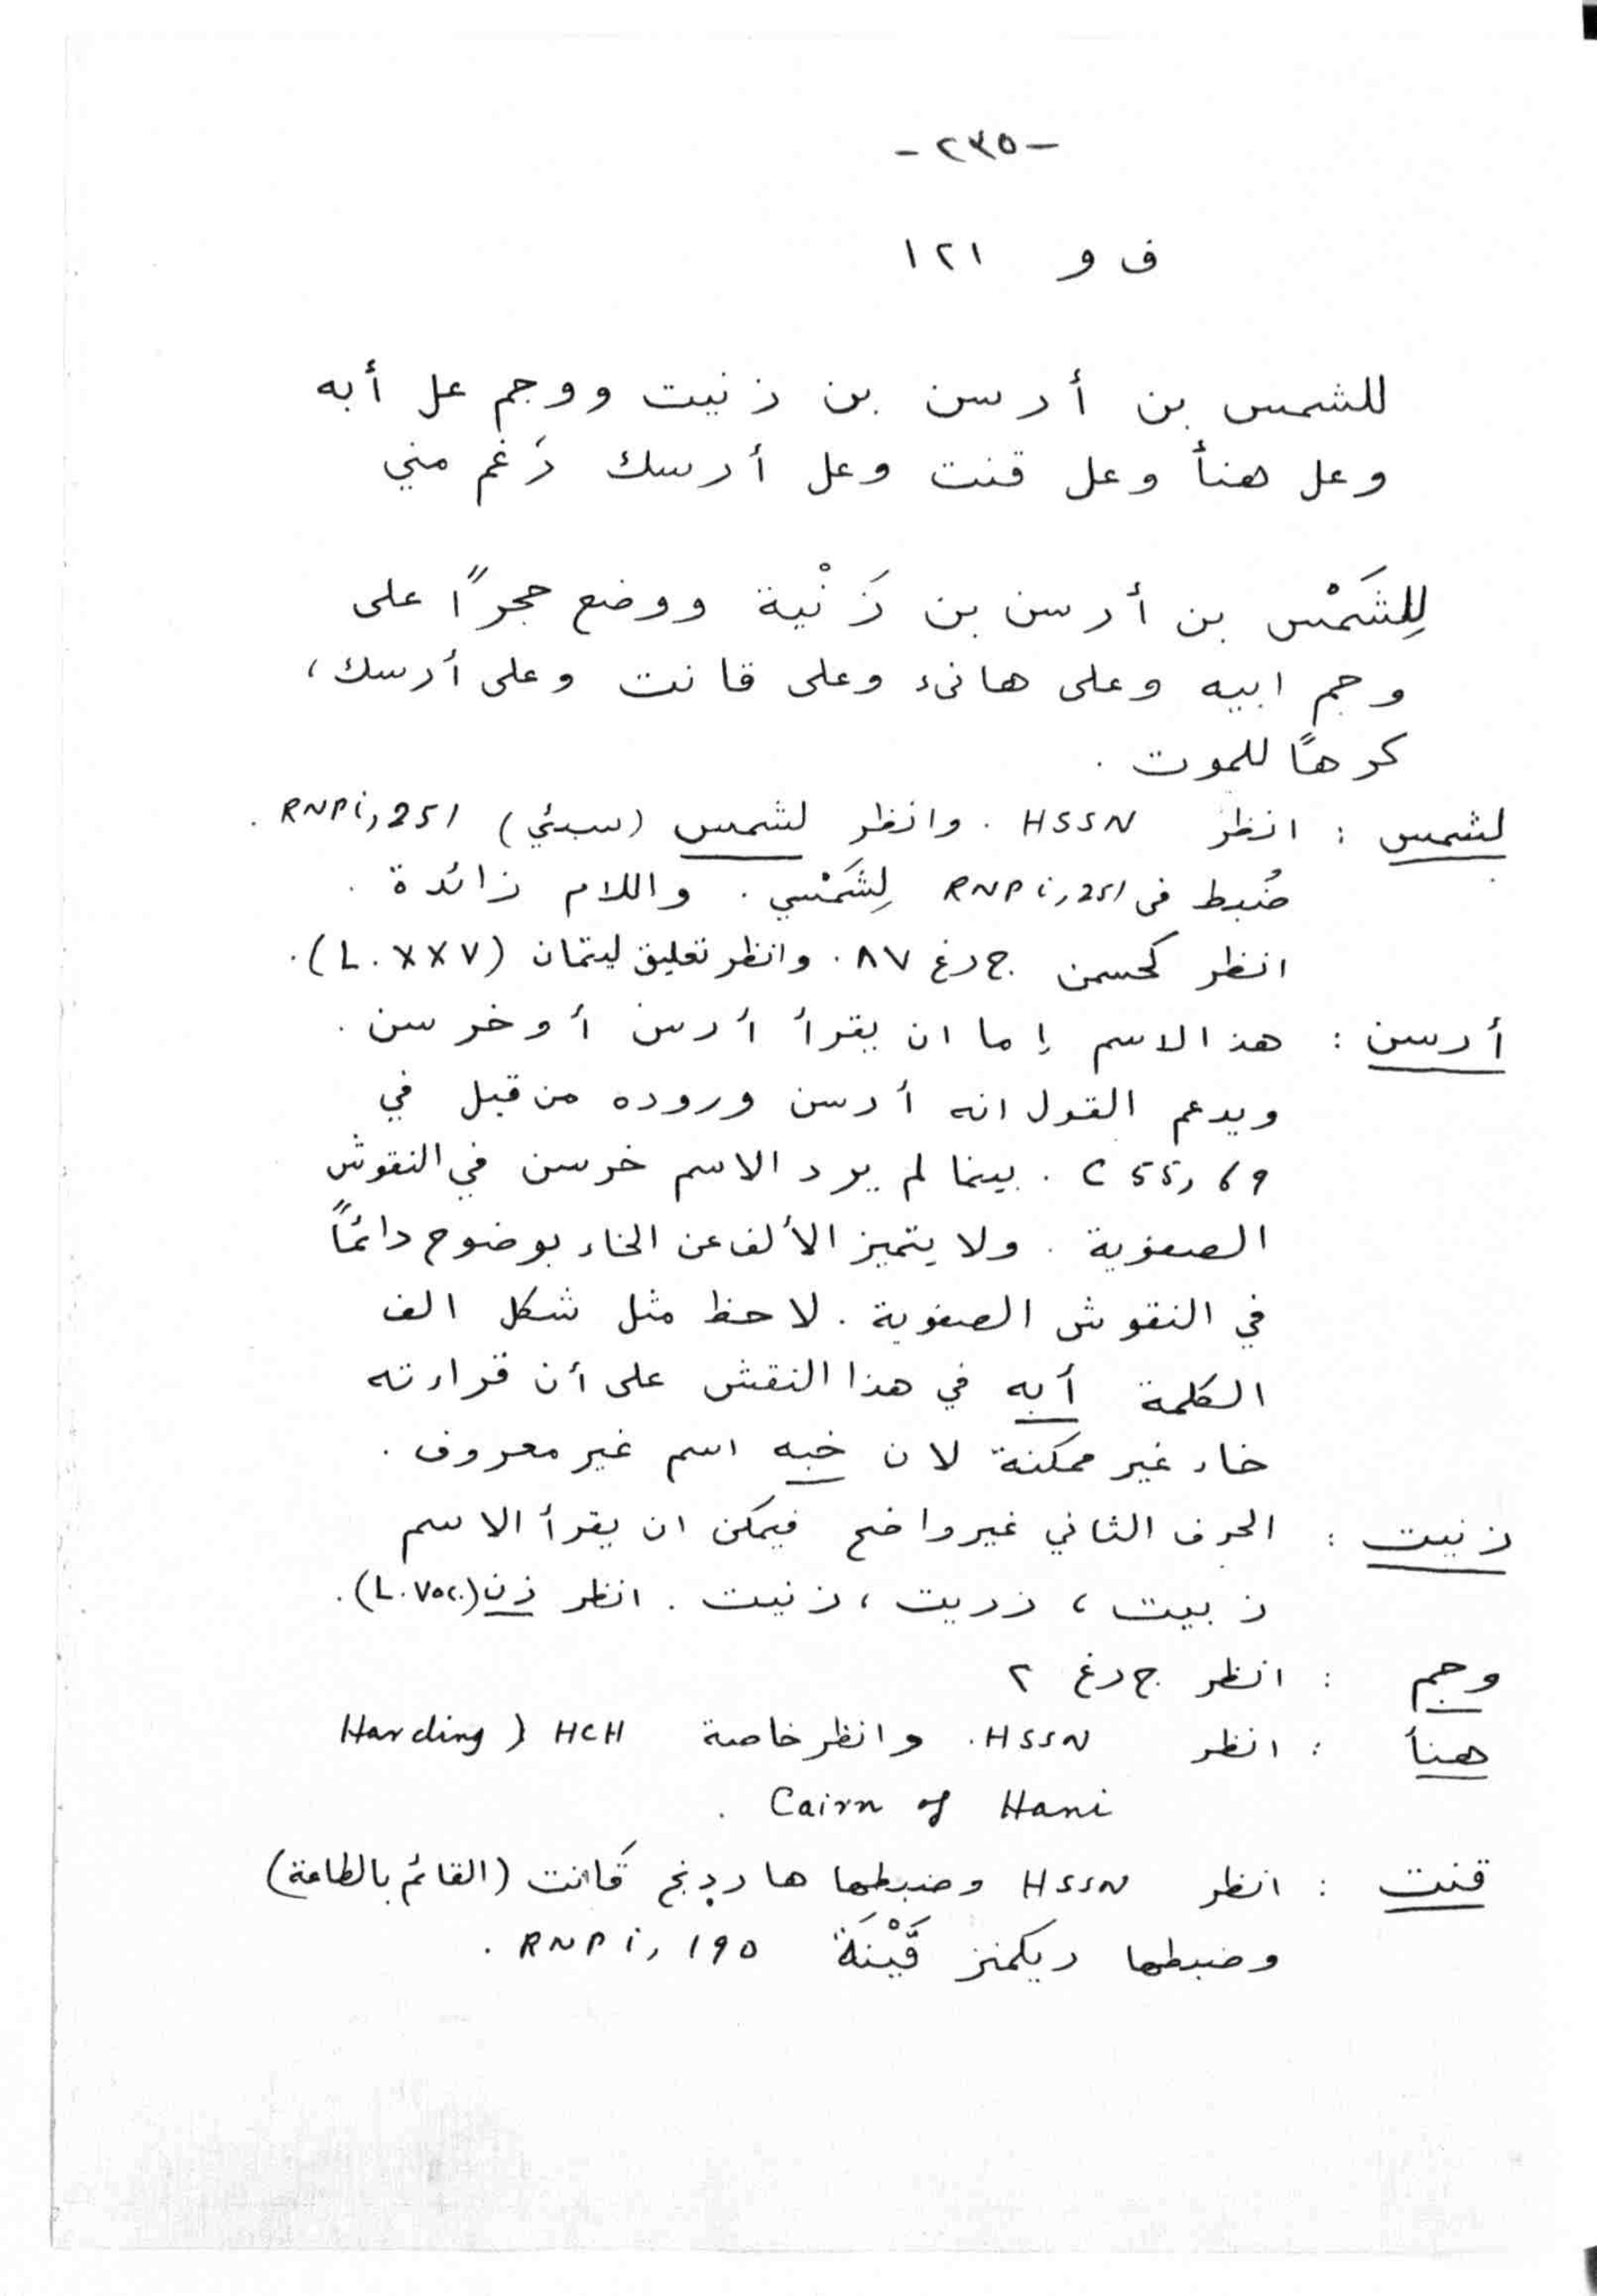 -٢٣٥-
ف و ١٢١
للشمس بن أرسن بن زنيت ووجم عل أبه
وعل هنأ وعل قنت وعل أرسك رَغم مني
لِلشَمْس بن أرسن بن زَنْية ووضع حجراً على
وجم ابيه وعلى هانىء وعلى قانت وعلى أرسك،
كرهاً للموت .
لشمس : انظر HSSN . وانظر لشمس (سبئي) RNPi, 251 .
ضُبط في RNPi, 251 لِشَمْسي . واللام زائدة .
انظر كحسمن ج رغ ٨٧ . وانظر تعليق ليتمان (L. XXV) .
أرسن : هذ الاسم إما ان يقرأ أرسن أو خرسن .
ويدعم القول انه أرسن وروده من قبل في
C 55, 69 . بينما لم يرد الاسم خرسن في النقوش
الصفوية . ولا يتميز الألف عن الخاء بوضوح دائماً
في النقوش الصفوية . لاحظ مثل شكل الف
الكلمة أبه في هذا النقش على أن قراءته
خاء غير ممكنة لان خبه اسم غير معروف .
زنيت : الحرف الثاني غير واضح فيمكن ان يقرأ الاسم
زبيت ، زريت ، زنيت . انظر زن (L. Voc.) .
وجم : انظر ج رغ ٢
هنأ : انظر HSSN . وانظر خاصة HCH ) Harding
Cairn of Hani .
قنت : انظر HSSN وضبطها هاردنج قَانت (القائم بالطاعة)
وضبطها ريكمنز قَيْنَة RNPi, 190 .